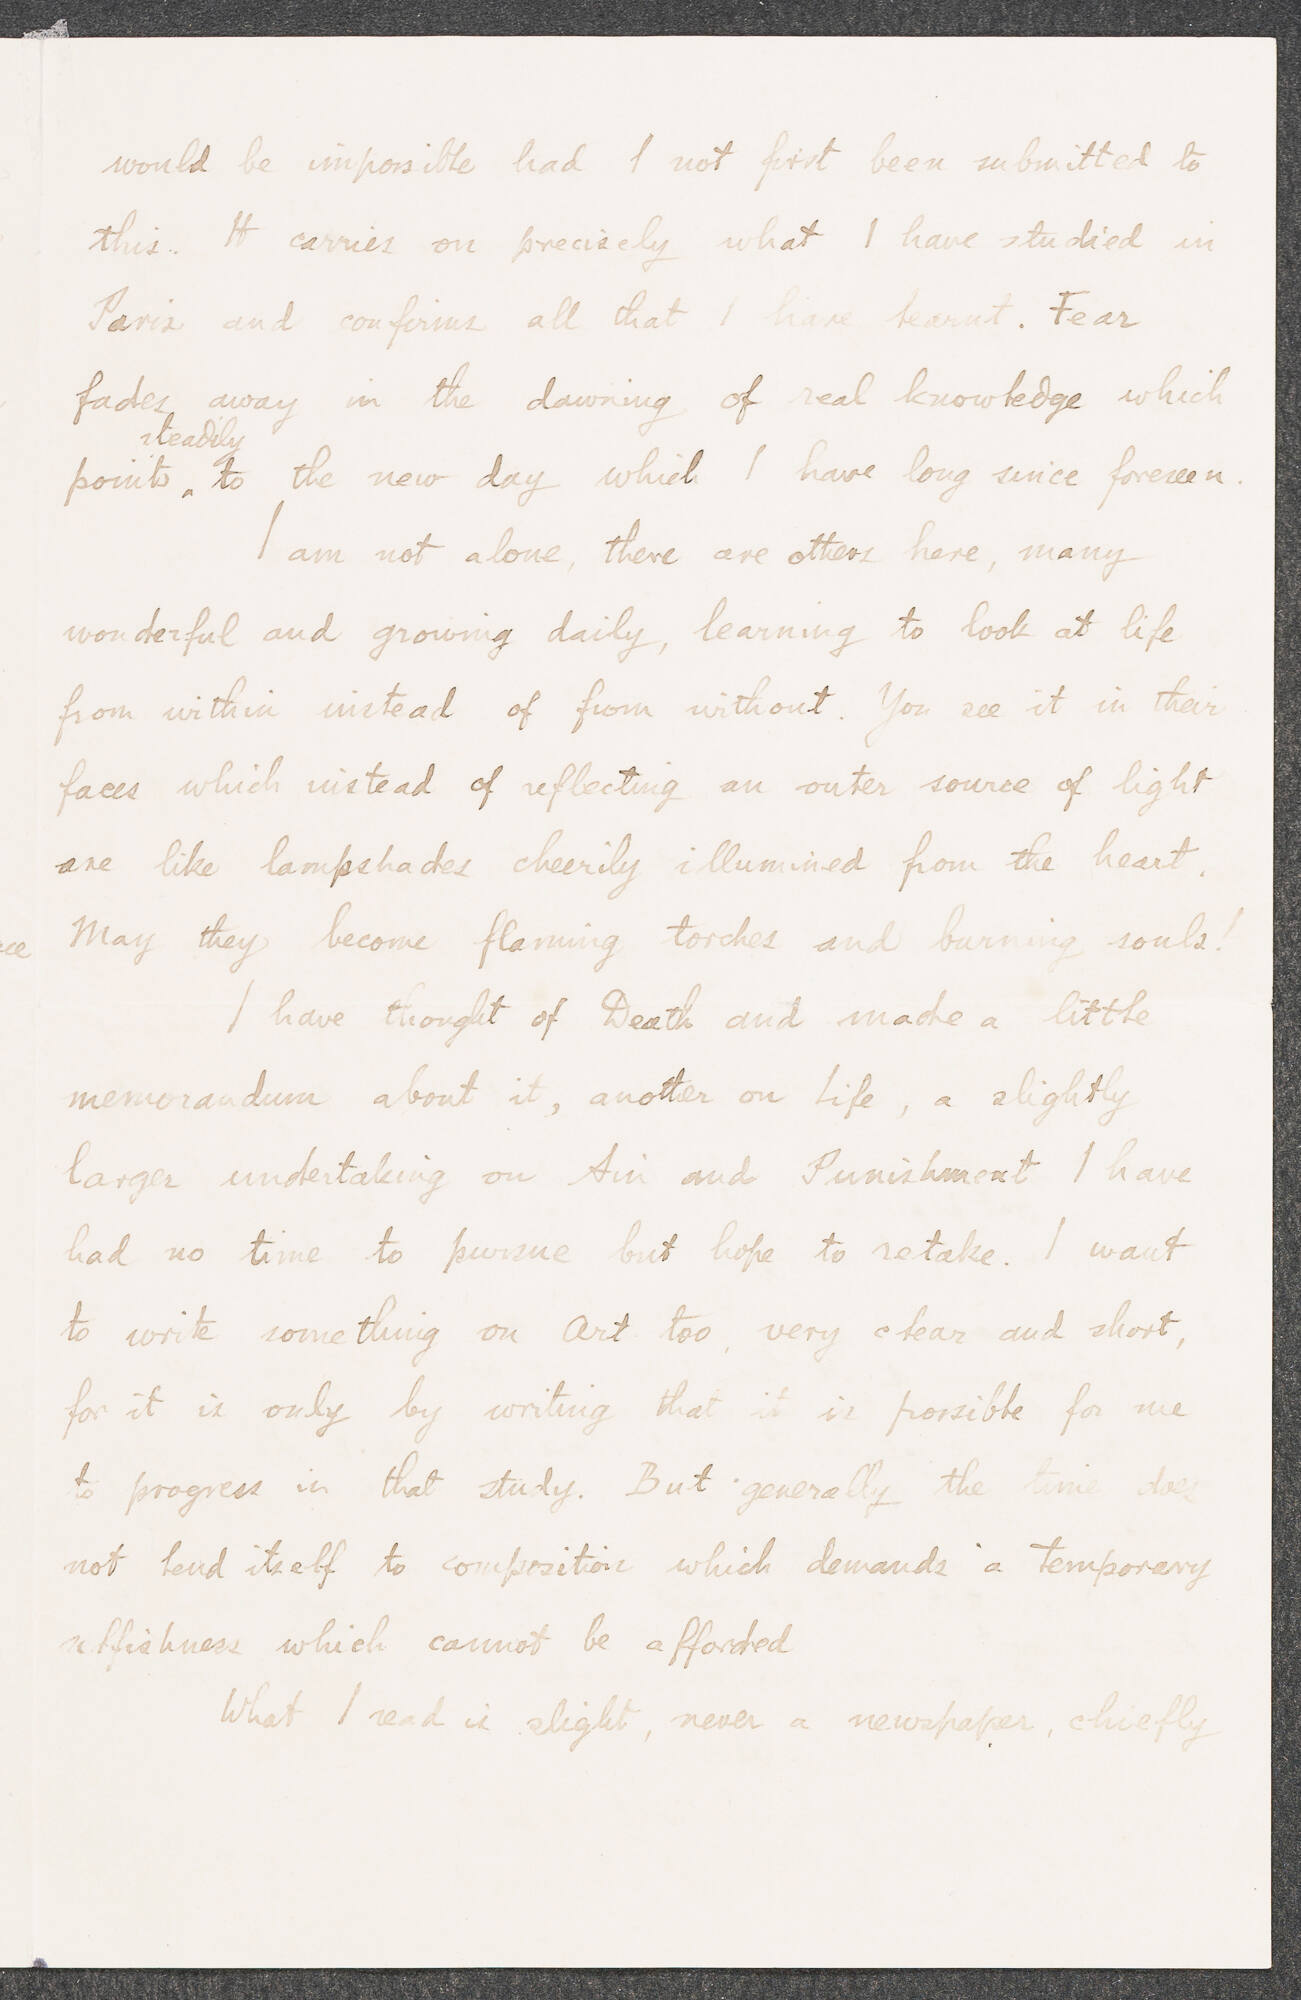 would be impossible had I not first been submitted to
this. It carries on precisely what I have studied in
Paris and confirms all that I have learnt. Fear
fades away in the dawning of real knowledge which
steadily
points ‸ to the new day which I have long since foreseen.
I am not alone, there are others here, many
wonderful and growing daily, learning to look at life
from within instead of from without. You see it in their
faces which instead of reflecting an outer source of light
are like lampshades cheerily illumined from the heart.
May they become flaming torches and burning souls!
I have thought of Death and made a little
memorandum about it, another on Life, a slightly
larger undertaking on Sin and Punishment I have
had no time to pursue but hope to retake. I want
to write something on Art too, very clear and short,
for it is only by writing that it is possible for me
to progress in that study. But generally the time does
not lend itself to composition which demands a temporary
selfishness which cannot be afforded
What I read is slight, never a newspaper, chiefly